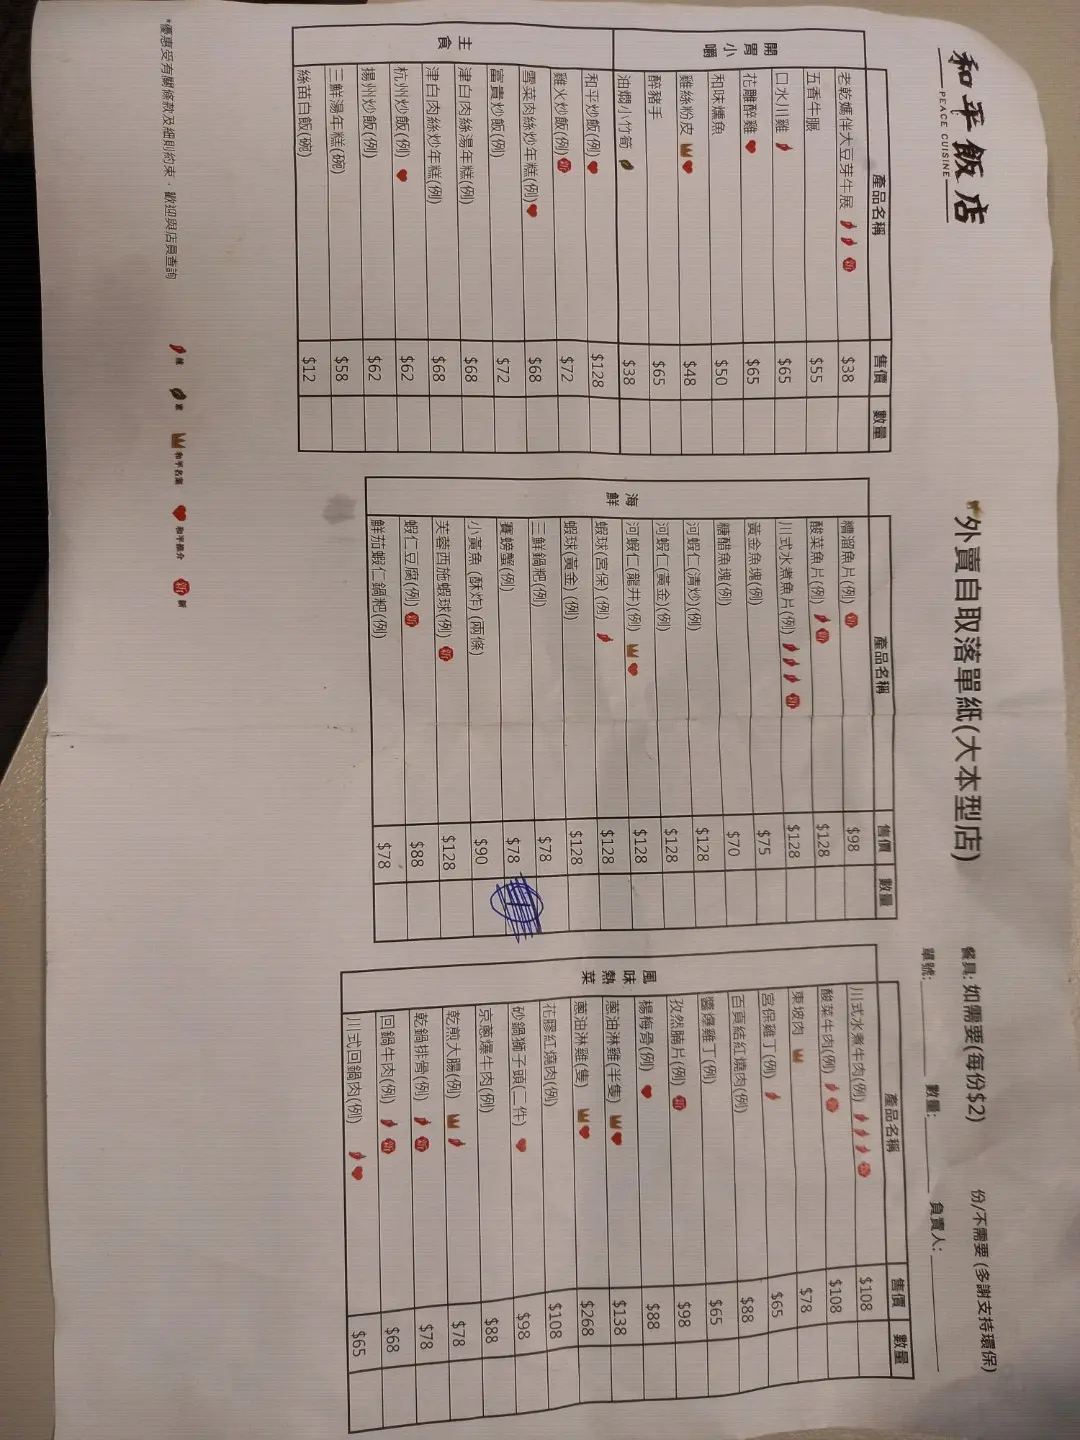 和平飯店
PEACE CUISINE
*外賣自取落單紙(大本型店)
餐具: 如需要(每份$2) 份/不需要 (多謝支持環保)
單號: 數量: 負責人:
產品名稱 售價 數量
開胃小嚐
老乾媽伴大豆芽牛展 新 $38
五香牛𦟌 $55
口水川雞 $65
花雕醉雞 $65
和味燻魚 $50
雞絲粉皮 $48
醉豬手 $65
油燜小竹筍 $38
主食
和平炒飯(例) $128
雞火炒飯(例) 新 $72
雪菜肉絲炒年糕(例) $68
富貴炒飯(例) $72
津白肉絲湯年糕(例) $68
津白肉絲炒年糕(例) $68
杭州炒飯(例) $62
揚州炒飯(例) $62
三鮮湯年糕(碗) $58
絲苗白飯(碗) $12
產品名稱 售價 數量
海鮮
糟溜魚片(例) 新 $98
酸菜魚片(例) 新 $128
川式水煮魚片(例) 新 $128
黃金魚塊(例) $75
糖醋魚塊(例) $70
河蝦仁(清炒)(例) $128
河蝦仁(黃金)(例) $128
河蝦仁(龍井)(例) $128
蝦球(宮保) (例) $128
蝦球(黃金) (例) $128
三鮮鍋粑(例) $78
賽螃蟹(例) $78
小黃魚 (酥炸) (兩條) $90
芙蓉西施蝦球(例) 新 $128
蝦仁豆腐(例) 新 $88
鮮茄蝦仁鍋粑(例) $78
產品名稱 售價 數量
風味熱菜
川式水煮牛肉(例) 新 $108
酸菜牛肉(例) 新 $108
東坡肉 $78
宮保雞丁(例) $65
百頁結紅燒肉(例) $88
醬爆雞丁(例) $65
孜然腩片(例) 新 $98
楊梅骨(例) $88
蔥油淋雞(半隻) $138
蔥油淋雞(隻) $268
花膠紅燒肉(例) $108
砂鍋獅子頭(二件) $98
京蔥爆牛肉(例) $88
乾煎大腸(例) $78
乾鍋排骨(例) 新 $78
回鍋牛肉(例) 新 $68
川式回鍋肉(例) $65
*優惠受有關條款及細則約束，歡迎與店員查詢
辣 素 和平名菜 和平推介 新 新